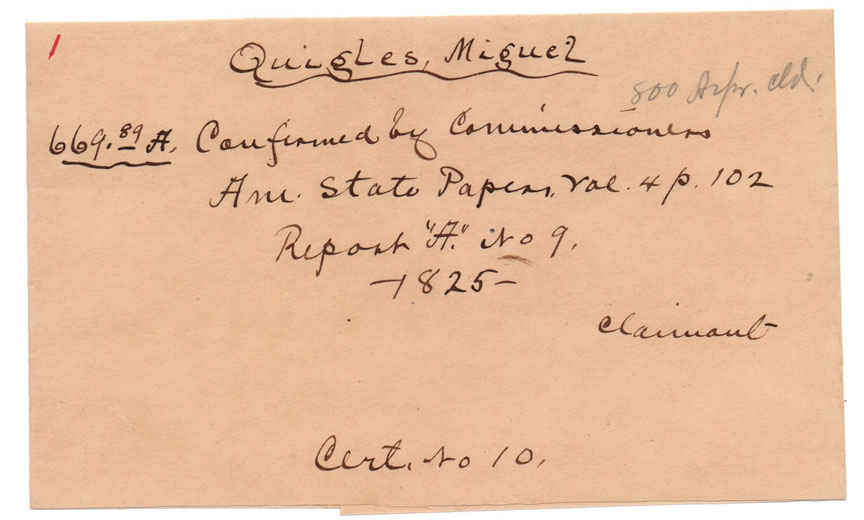 1
Quigles, Miguel
800 Arpr. cld.
669.89 A. Confirmed by Commissioners
Am. State Papers, Vol. 4 p. 102
Report "A." No 9.
-1825-
Claimant
Cert. No 10.